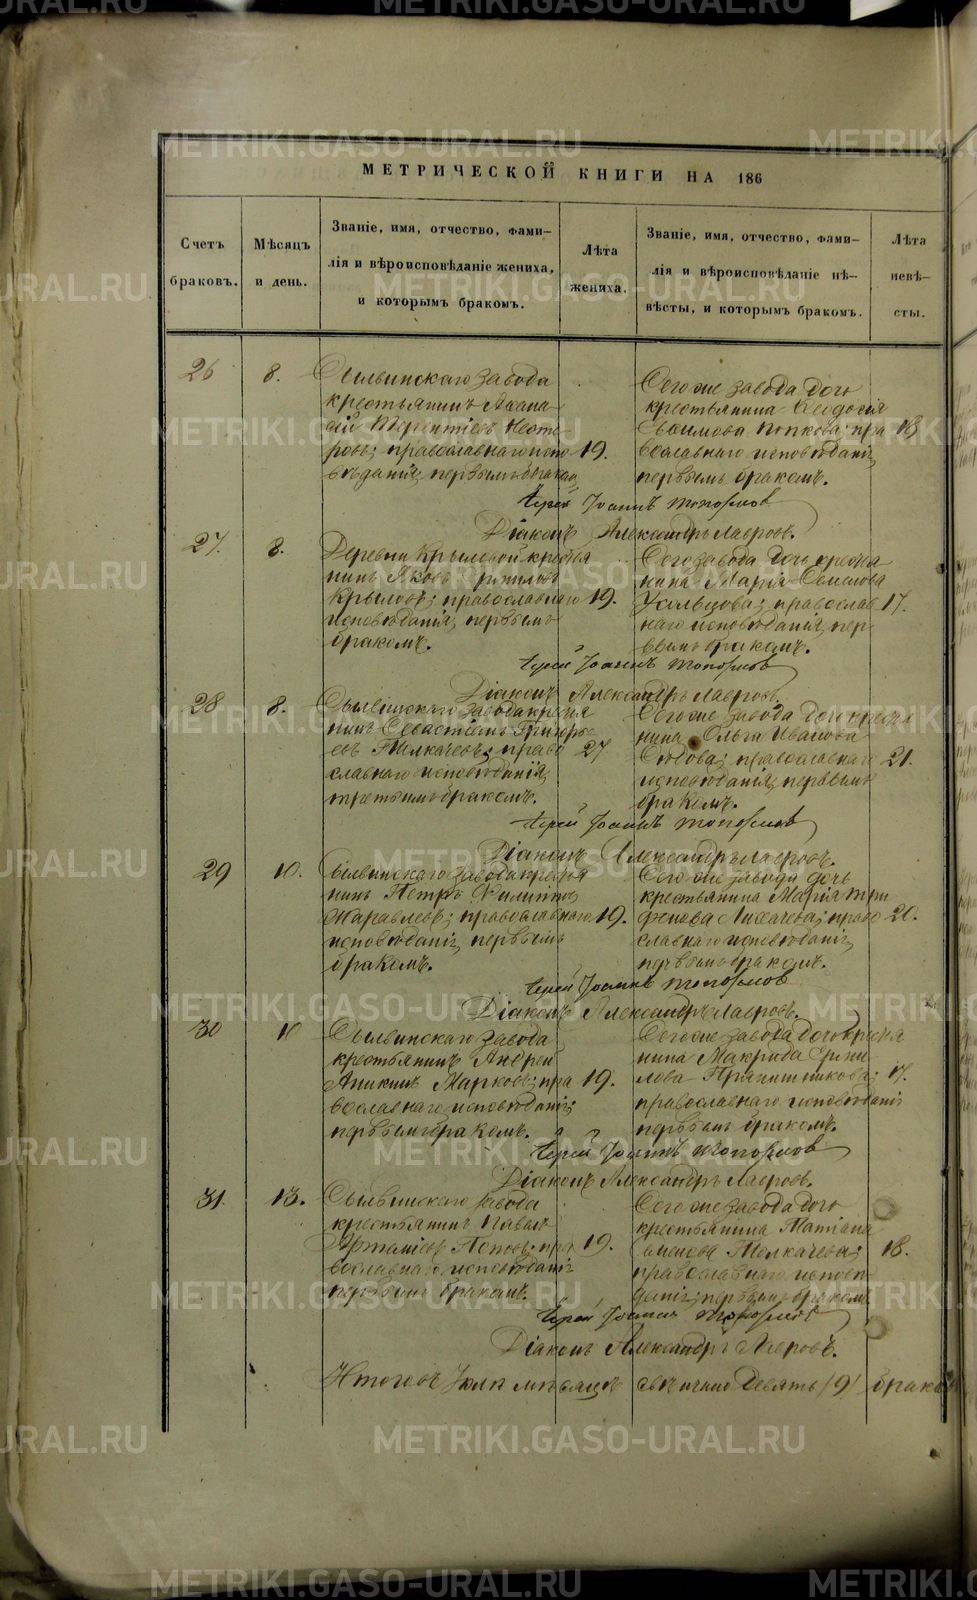 МЕТРИЧЕСКОЙ КНИГИ НА 186
Счетъ браковъ.
Мѣсяцъ и день.
Званіе, имя, отчество, фами-
лія и вѣроисповѣданіе жениха,
и которымъ бракомъ.
Лѣта жениха.
Званіе, имя, отчество, фами-
лія и вѣроисповѣданіе не-
вѣсты, и которымъ бракомъ.
Лѣта невѣ-
сты.
26
8.
Сылвинскаго завода
крестьянинъ Афана-
сій Терентіевъ Несте-
ровъ; православнаго испо
вѣданія, первымъ бракомъ
19.
Сего же завода дочь
крестьянина Ѳеодосія
Попкова; пра
вославнаго исповѣданія,
первымъ бракомъ.
18
Іерей Іоаннъ Топорковъ
Діаконъ Александръ Лавровъ.
27.
8.
Деревни Крыловой кресть
нинъ Яковъ
Крыловъ; православнаго
исповѣданія, первымъ
бракомъ.
19.
Сего завода дочь крестья
нина Марія
Усольцова; православ
наго исповѣданія, пер-
вымъ бракомъ.
17.
Іерей Іоаннъ Топорковъ
Діаконъ Александръ Лавровъ.
28
8.
Сылвинскаго завода кресть
нинъ Севастіанъ Григорь
евъ Толкачевъ; право
славнаго исповѣданія,
третьимъ бракомъ.
27
Сего же завода дочь кресть
нина Ольга Иванова
православнаго
исповѣданія, первымъ
бракомъ.
21.
Іерей Іоаннъ Топорковъ
Діаконъ Александръ Лавровъ.
29
10.
Сылвинскаго завода кресть
нинъ Петръ Филиппов
Журавлевъ; православнаго
исповѣданія, первымъ
бракомъ.
19.
Сего же завода дочь
крестьянина Марія Три
фонова Лихачева; право
славнаго исповѣданія,
первымъ бракомъ.
20.
Іерей Іоаннъ Топорковъ
Діаконъ Александръ Лавровъ.
30
10
Сылвинскаго завода
крестьянинъ Андрей
Аникинъ Марковъ; пра
вославнаго исповѣданія;
первымъ бракомъ.
19.
Сего же завода дочь кресть
нина Макрида Ерми
лова Прянишникова;
православнаго исповѣданія
первымъ бракомъ.
17.
Іерей Іоаннъ Топорковъ
Діаконъ Александръ Лавровъ.
31
13.
Сылвинскаго завода
крестьянинъ Павелъ
Поповъ; пра
вославнаго исповѣданія
первымъ бракомъ.
19.
Сего же завода дочь
крестьянина Татіана
Семенова Толкачева;
православнаго исповѣ-
данія; первымъ бракомъ
18.
Іерей Іоаннъ Топорковъ
Діаконъ Александръ Лавровъ.
Итого въ Іюлѣ мѣсяцѣ свѣнчано девять /9/ браковъ
METRIKI.GASO-URAL.RU